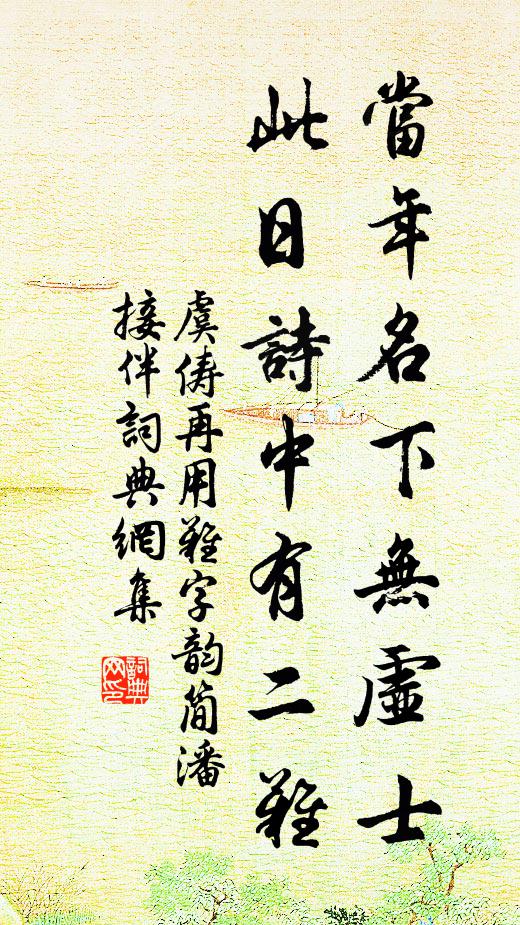 當年名下無虛士
此日詩中有二難
虞儔再用難字韵簡潘
接伴詞典網集
詞典网印